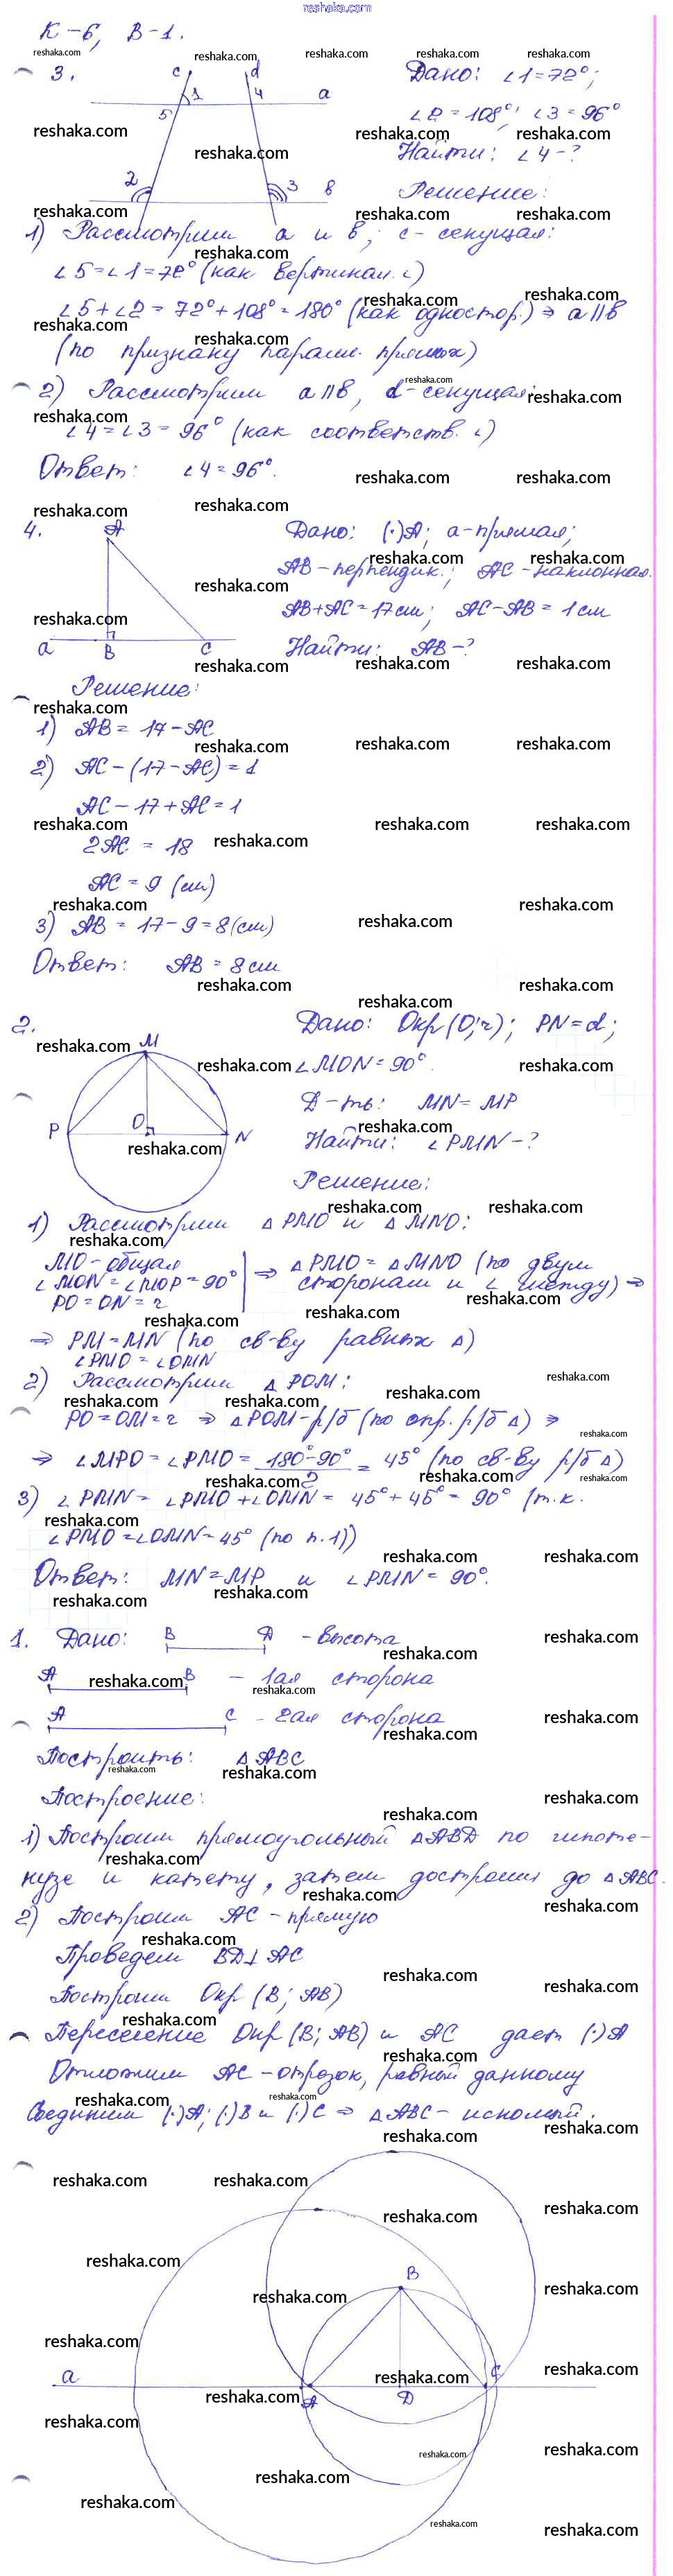 reshaka.com
К-6, В-1.
3.
c d
1 4 a
5
2 3 в
Дано: ∠1=72°;
∠2=108°; ∠3=96°
Найти: ∠4-?
Решение:
1) Рассмотрим a и в; c- секущая:
∠5=∠1=72° (как вертикал. ∠)
∠5+∠2=72°+108°=180° (как одностор.) ⇒ a||в
(по признаку паралл. прямых)
2) Рассмотрим a||в, d-секущая:
∠4=∠3=96° (как соответств. ∠)
Ответ: ∠4=96°.
4.
A
a B C
Дано: (·)A; a-прямая;
AB-перпендик.; AC-наклонная.
AB+AC=17см; AC-AB=1см
Найти: AB-?
Решение:
1) AB=17-AC
2) AC-(17-AC)=1
AC-17+AC=1
2AC=18
AC=9 (см)
3) AB=17-9=8(см)
Ответ: AB=8см
2.
M
P O N
Дано: Окр(O;r); PN=d;
∠MON=90°.
Д-ть: MN=MP
Найти: ∠PMN-?
Решение:
1) Рассмотрим △PMO и △MNO:
MO-общая
∠MON=∠MOP=90°
PO=ON=r
⇒ △PMO=△MNO (по двум
сторонам и ∠ между) ⇒
⇒ PM=MN (по св-ву равных △)
∠PMO=∠OMN
2) Рассмотрим △POM:
PO=OM=r ⇒ △POM-р/б (по опр. р/б △) ⇒
⇒ ∠MPO=∠PMO= (180°-90°)/2 = 45° (по св-ву р/б △)
3) ∠PMN=∠PMO+∠OMN=45°+45°=90° (т.к.
∠PMO=∠OMN=45° (по п.1))
Ответ: MN=MP и ∠PMN=90°.
1. Дано: B D -высота
A B - 1ая сторона
A C - 2ая сторона
Построить: △ABC
Построение:
1) Построим прямоугольный △ABD по гипоте-
нузе и катету, затем достроим до △ABC.
2) Построим AC-прямую
Проведем BD⊥AC
Построим Окр(B; AB)
Пересечение Окр(B; AB) и AC дает (·)A
Отложим AC-отрезок, равный данному
Соединим (·)A; (·)B и (·)C ⇒ △ABC-искомый.
B
a A D C